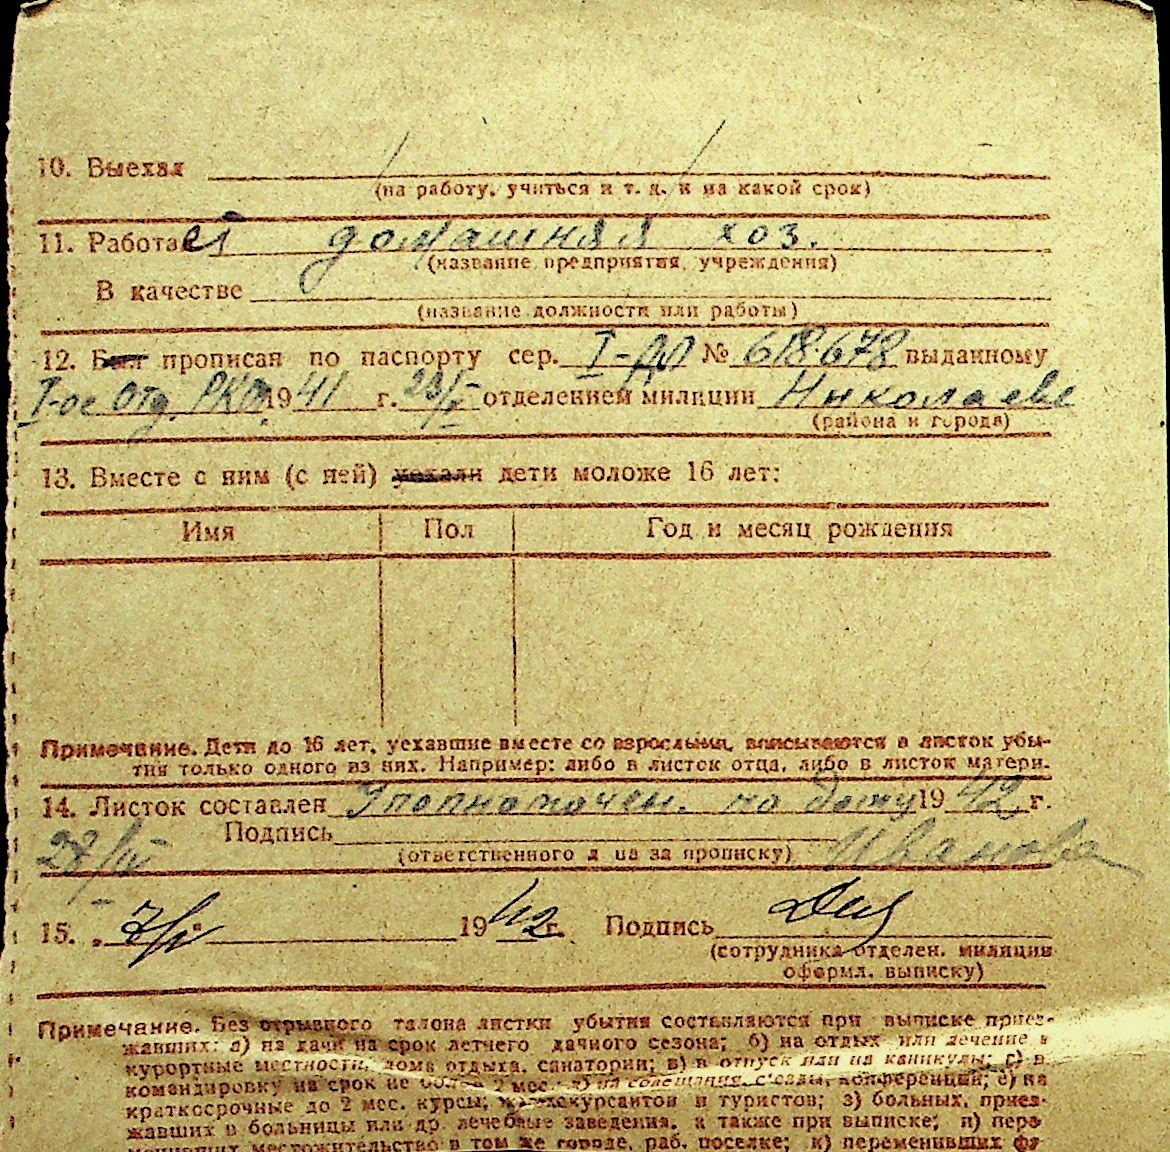 10. Выехал
(на работу, учиться и т. д. и на какой срок)
11. Работает домашняя хоз.
(название предприятия, учреждения)
В качестве
(название должности или работы)
12. Был прописан по паспорту сер. I-ДО № 618678 выданному
I-ое Отд. РКМ 1941 г. 23/I отделением милиции Николаеве
(района и города)
13. Вместе с ним (с ней) уехали дети моложе 16 лет:
Имя Пол Год и месяц рождения
Примечание. Дети до 16 лет, уехавшие вместе со взрослыми, вписываются в листок убы-
тия только одного из них. Например: либо в листок отца, либо в листок матери.
14. Листок составлен Уполномочен. по дому 1942 г.
27/IV Подпись Иванова
(ответственного л ца за прописку)
15. „ 7/V " 1942 г. Подпись
(сотрудника отделен. милиции
оформл. выписку)
Примечание. Без отрывного талона листки убытия составляются при выписке приез-
жавших: а) на дачи на срок летнего дачного сезона; б) на отдых или лечение в
курортные местности, дома отдыха, санатории; в) в отпуск или на каникулы; г) в
командировку на срок не более 2 мес.; д) на совещания, съезды, конференции; е) на
краткосрочные до 2 мес. курсы; ж) экскурсантов и туристов; з) больных, приез-
жавших в больницы или др. лечебные заведения, а также при выписке; и) пере-
менивших местожительство в том же городе, раб. поселке; к) переменивших фа-